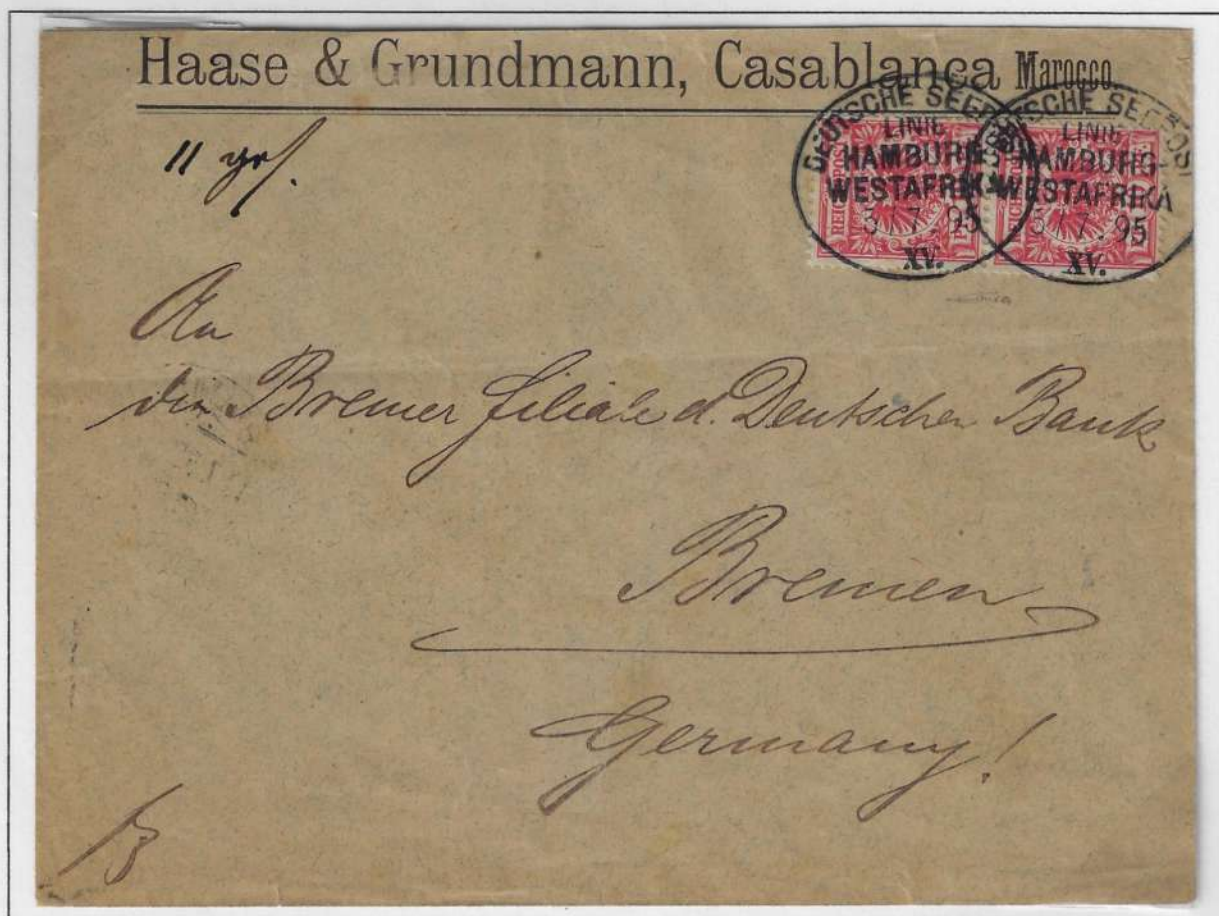 Haase & Grundmann, Casablanca Marocco.
DEUTSCHE SEEPOST
LINIE
HAMBURG-
WESTAFRIKA
3/7.95
XV.
DEUTSCHE SEEPOST
LINIE
HAMBURG-
WESTAFRIKA
3/7.95
XV.
REICHSPOST
REICHSPOST
11 gr/.
An
die Bremer filiale d. Deutschen Bank
Bremen
Germany!